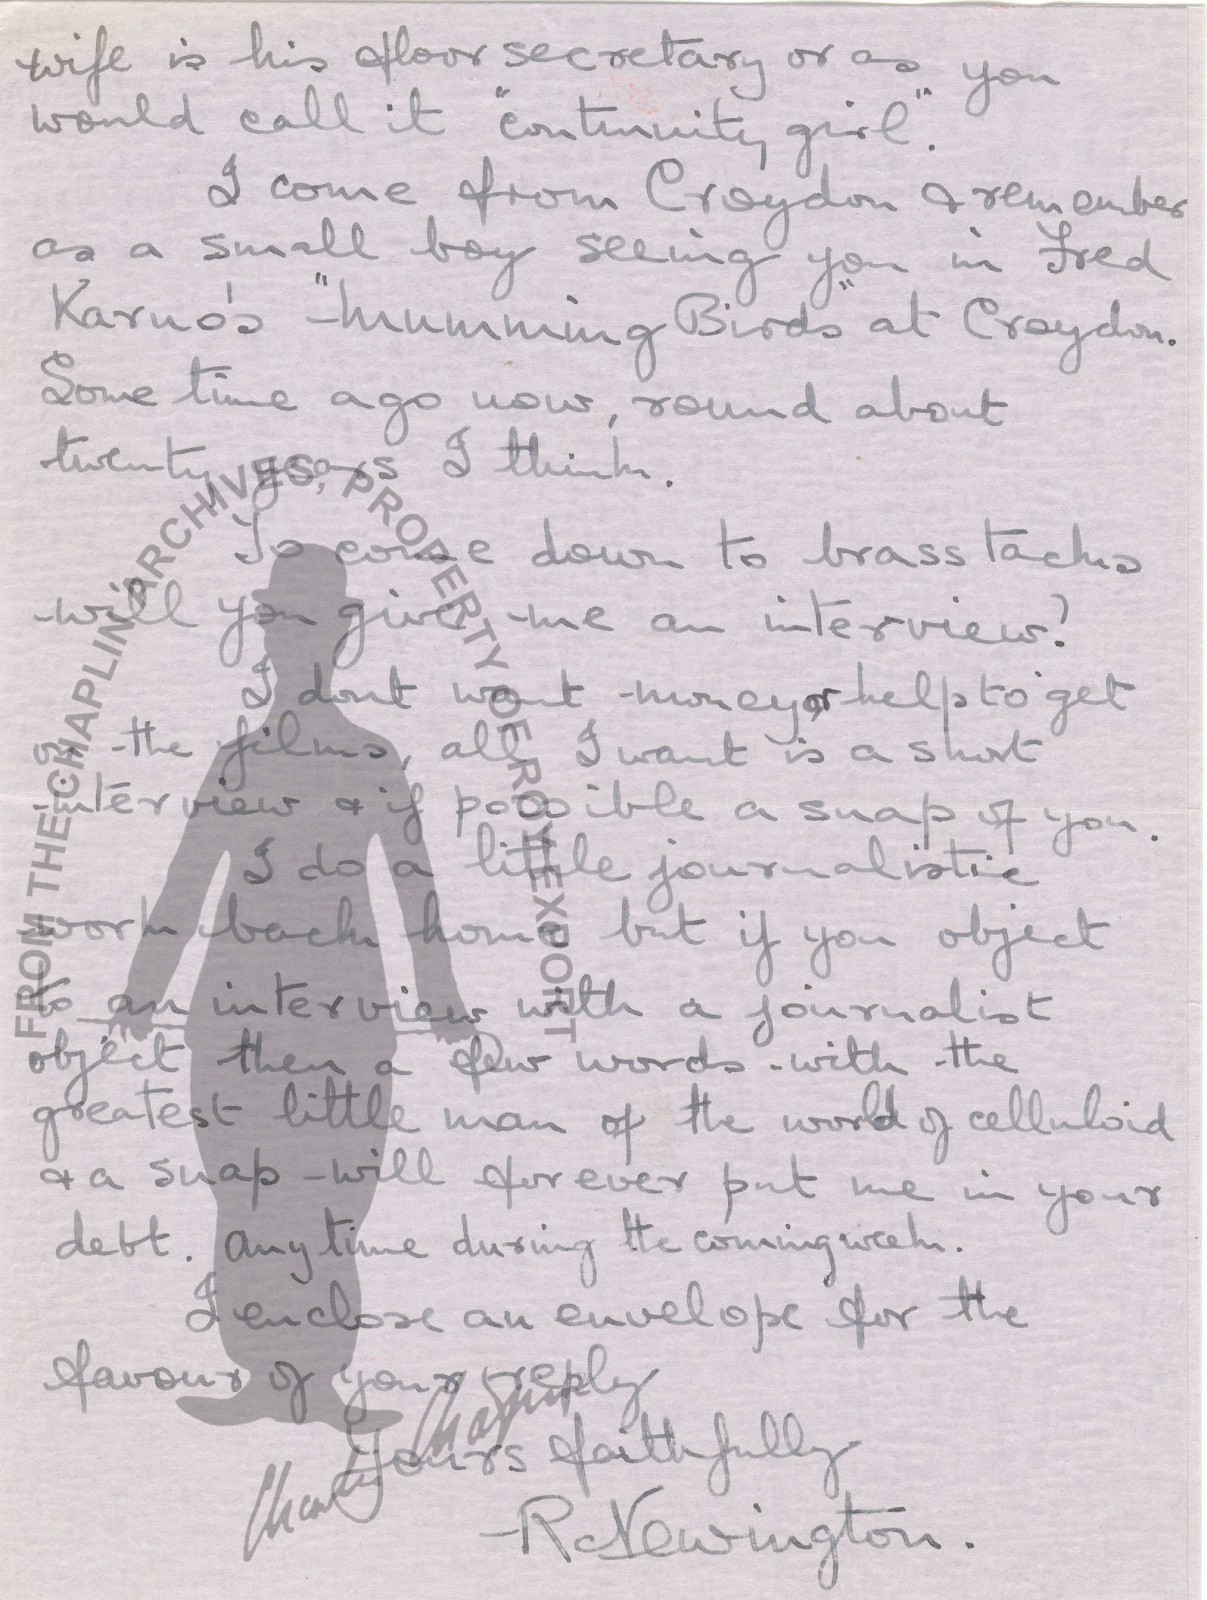 wife is his floor secretary or as you
would call it "continuity girl".
I come from Croydon & remember
as a small boy seeing you in Fred
Karno's "Mumming Birds" at Croydon.
Some time ago now, round about
twenty years I think.
To come down to brass tacks
will you give me an interview?
I dont want money or help to get
the films, all I want is a short
interview & if possible a snap of you.
I do a little journalistic
work back home but if you object
to an interview with a journalist
object then a few words with the
greatest little man of the world of celluloid
& a snap will forever put me in your
debt. Any time during the coming week.
I enclose an envelope for the
favour of your reply
Yours faithfully
R Newington.
FROM THE CHAPLIN ARCHIVES, PROPERTY OF ROY EXPORT S
Charlie Chaplin